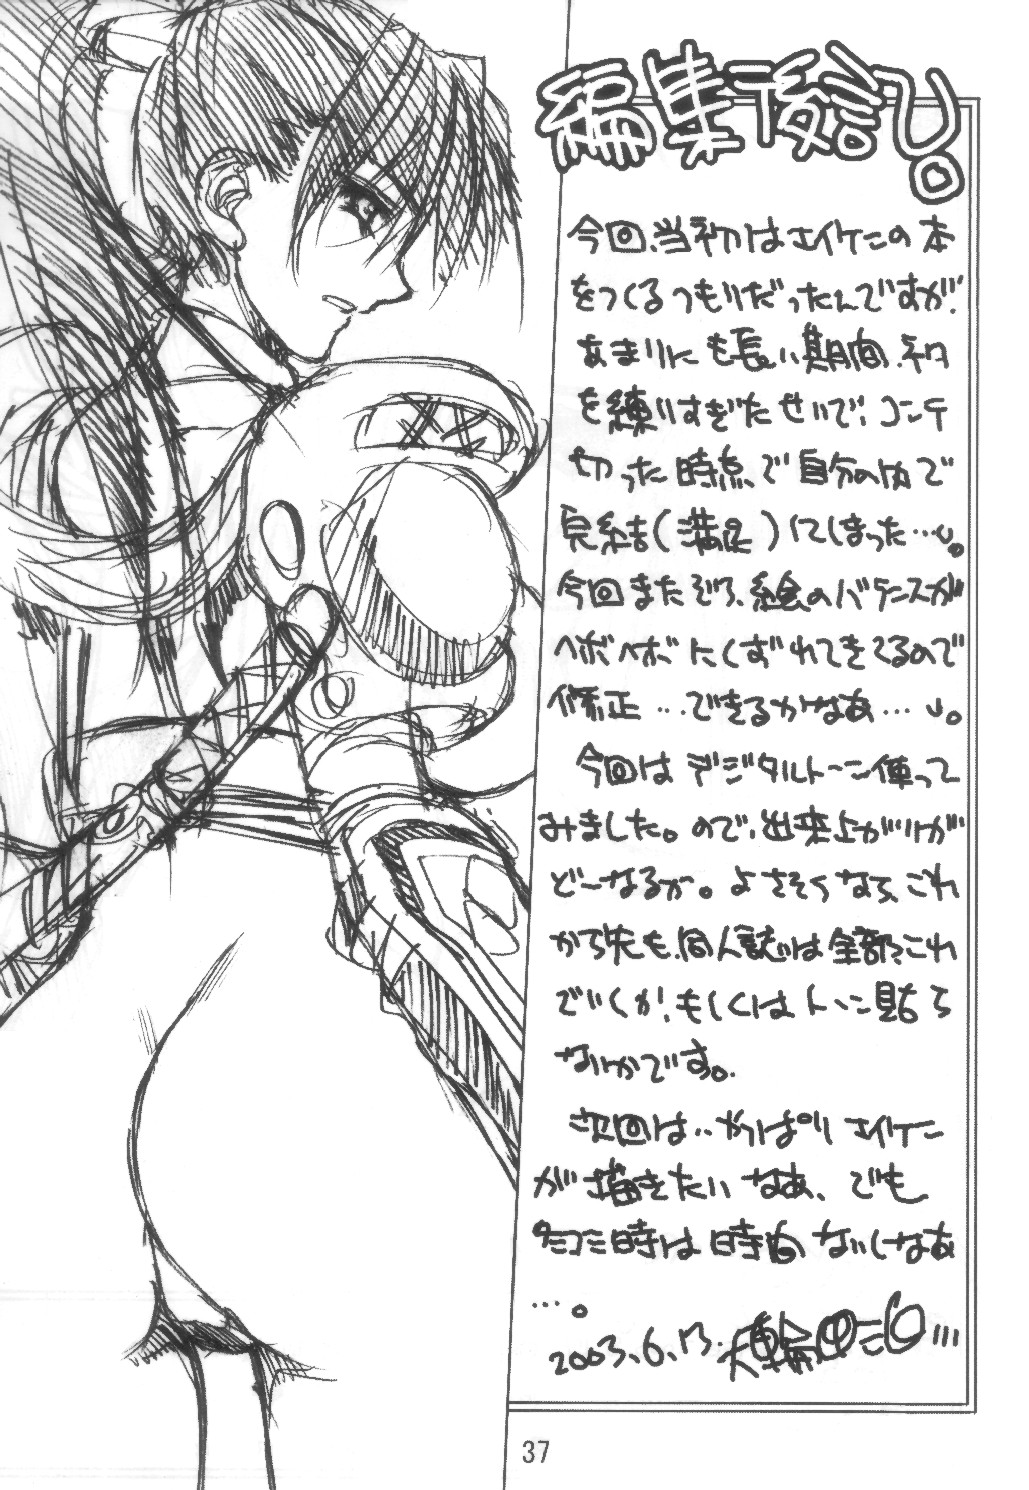 編集後記。
今回、当初はエイケンの本
をつくるつもりだったんですが、
あまりにも長い期間、ネタ
を練りすぎたせいで、コンテ
切った時点で自分の内で
完結(満足)してしまった…。
今回またぞろ、絵のバランスが
ヘボヘボにくずれてきてるので
修正…できるかなあ…。
今回はデジタルトーン使って
みました。ので、出来上がりが
どーなるか。よさそうなら、これ
から先も、同人誌は全部これ
でいくか、もしくはトーン貼ら
ないかです。
次回は‥やっぱりエイケン
が描きたいなあ、でも
夏コミ時は時間ないしなあ
…。
2003.6.13.
37